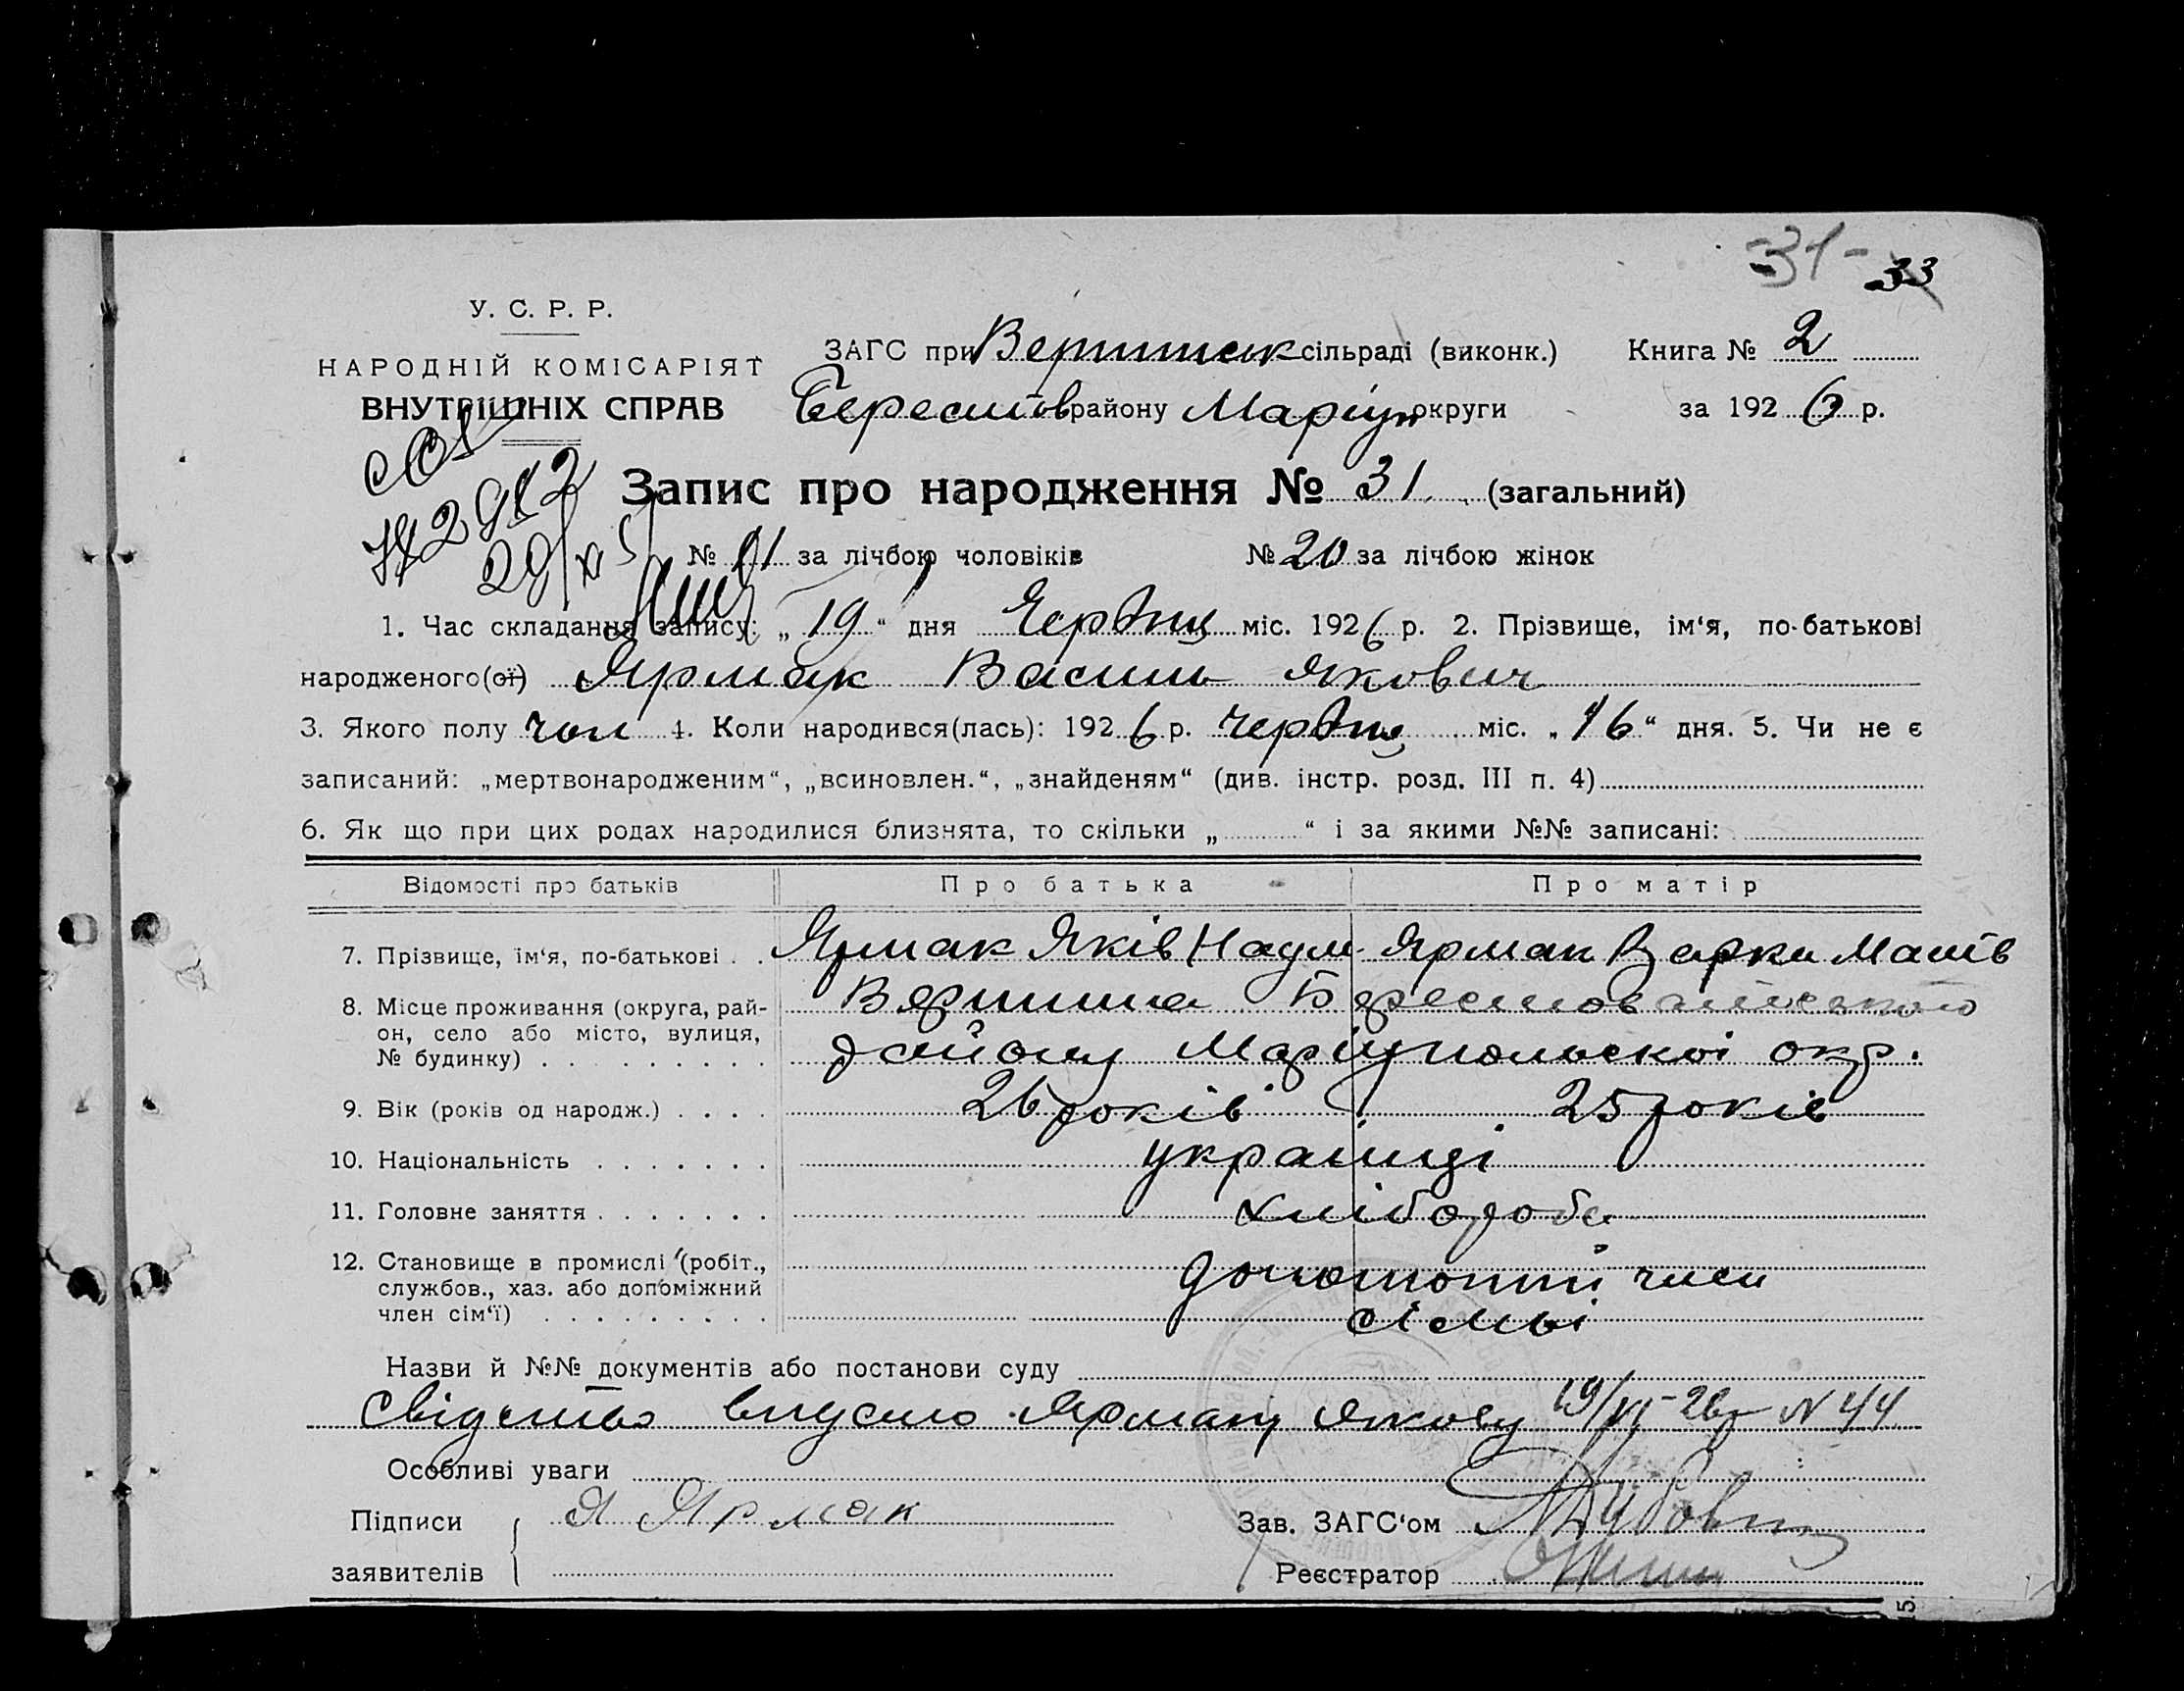 -31- 33
У. С. Р. Р.
НАРОДНІЙ КОМІСАРІЯТ
ВНУТРІШНІХ СПРАВ
ЗАГС при сільраді (виконк.) Книга № 2
Берестов району Маріуп округи за 1926 р.
Запис про народження № 31 (загальний)
№ 11 за лічбою чоловіків № 20 за лічбою жінок
1. Час складання запису: „19“ дня Червня міс. 1926 р. 2. Прізвище, ім‘я, по-батькові
народженого(ої) Ярмак Василь Якович
3. Якого полу чол 4. Коли народився(лась): 1926 р. Червня міс. „16“ дня. 5. Чи не є
записаний: „мертвонародженим“, „всиновлен.“, „знайденям“ (див. інстр. розд. III п. 4)
6. Як що при цих родах народилися близнята, то скільки „ “ і за якими №№ записані:
Відомості про батьків Про батька Про матір
7. Прізвище, ім‘я, по-батькові . . Ярмак Яків Наум Ярмак Варка Матв
8. Місце проживання (округа, рай-
он, село або місто, вулиця,
№ будинку) . . . . . . . . . району Маріупольскої окр.
9. Вік (років од народж.) . . . . 26 років 25 років
10. Національність . . . . . . . українці
11. Головне заняття . . . . . . . хлібороби
12. Становище в промислі (робіт.,
службов., хаз. або допоміжний
член сім‘ї) . . . . . . . . . сімьі
Назви й №№ документів або постанови суду
Ярмаку Якову 19/VI-26р N 44
Особливі уваги
Підписи Я Ярмак Зав. ЗАГС‘ом
заявителів Реєстратор